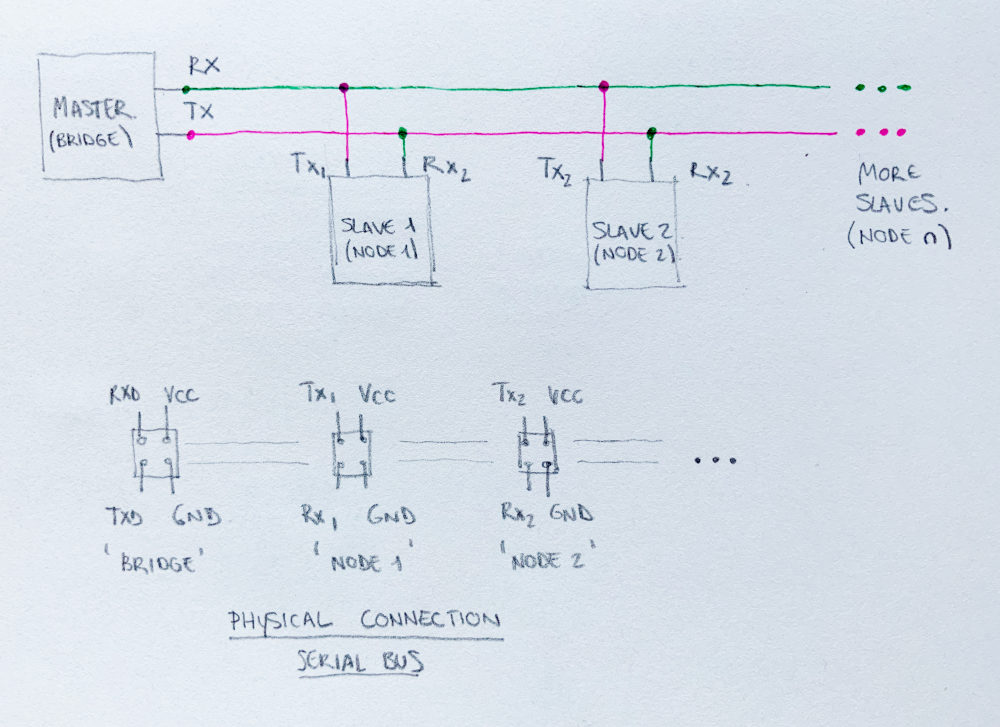 RX
MASTER
(BRIDGE)
TX
Tx1
Rx2
Tx2
Rx2
SLAVE 1
(NODE 1)
SLAVE 2
(NODE 2)
MORE
SLAVES.
(NODE n)
RXD VCC
Tx1 VCC
Tx2 VCC
TXD GND
Rx1 GND
Rx2 GND
'BRIDGE'
'NODE 1'
'NODE 2'
PHYSICAL CONNECTION
SERIAL BUS